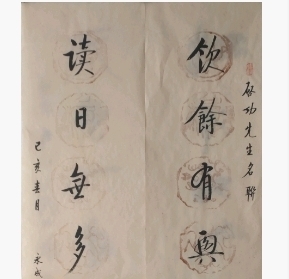 启功先生名联
饮余有兴
读日无多
己亥春月
永成